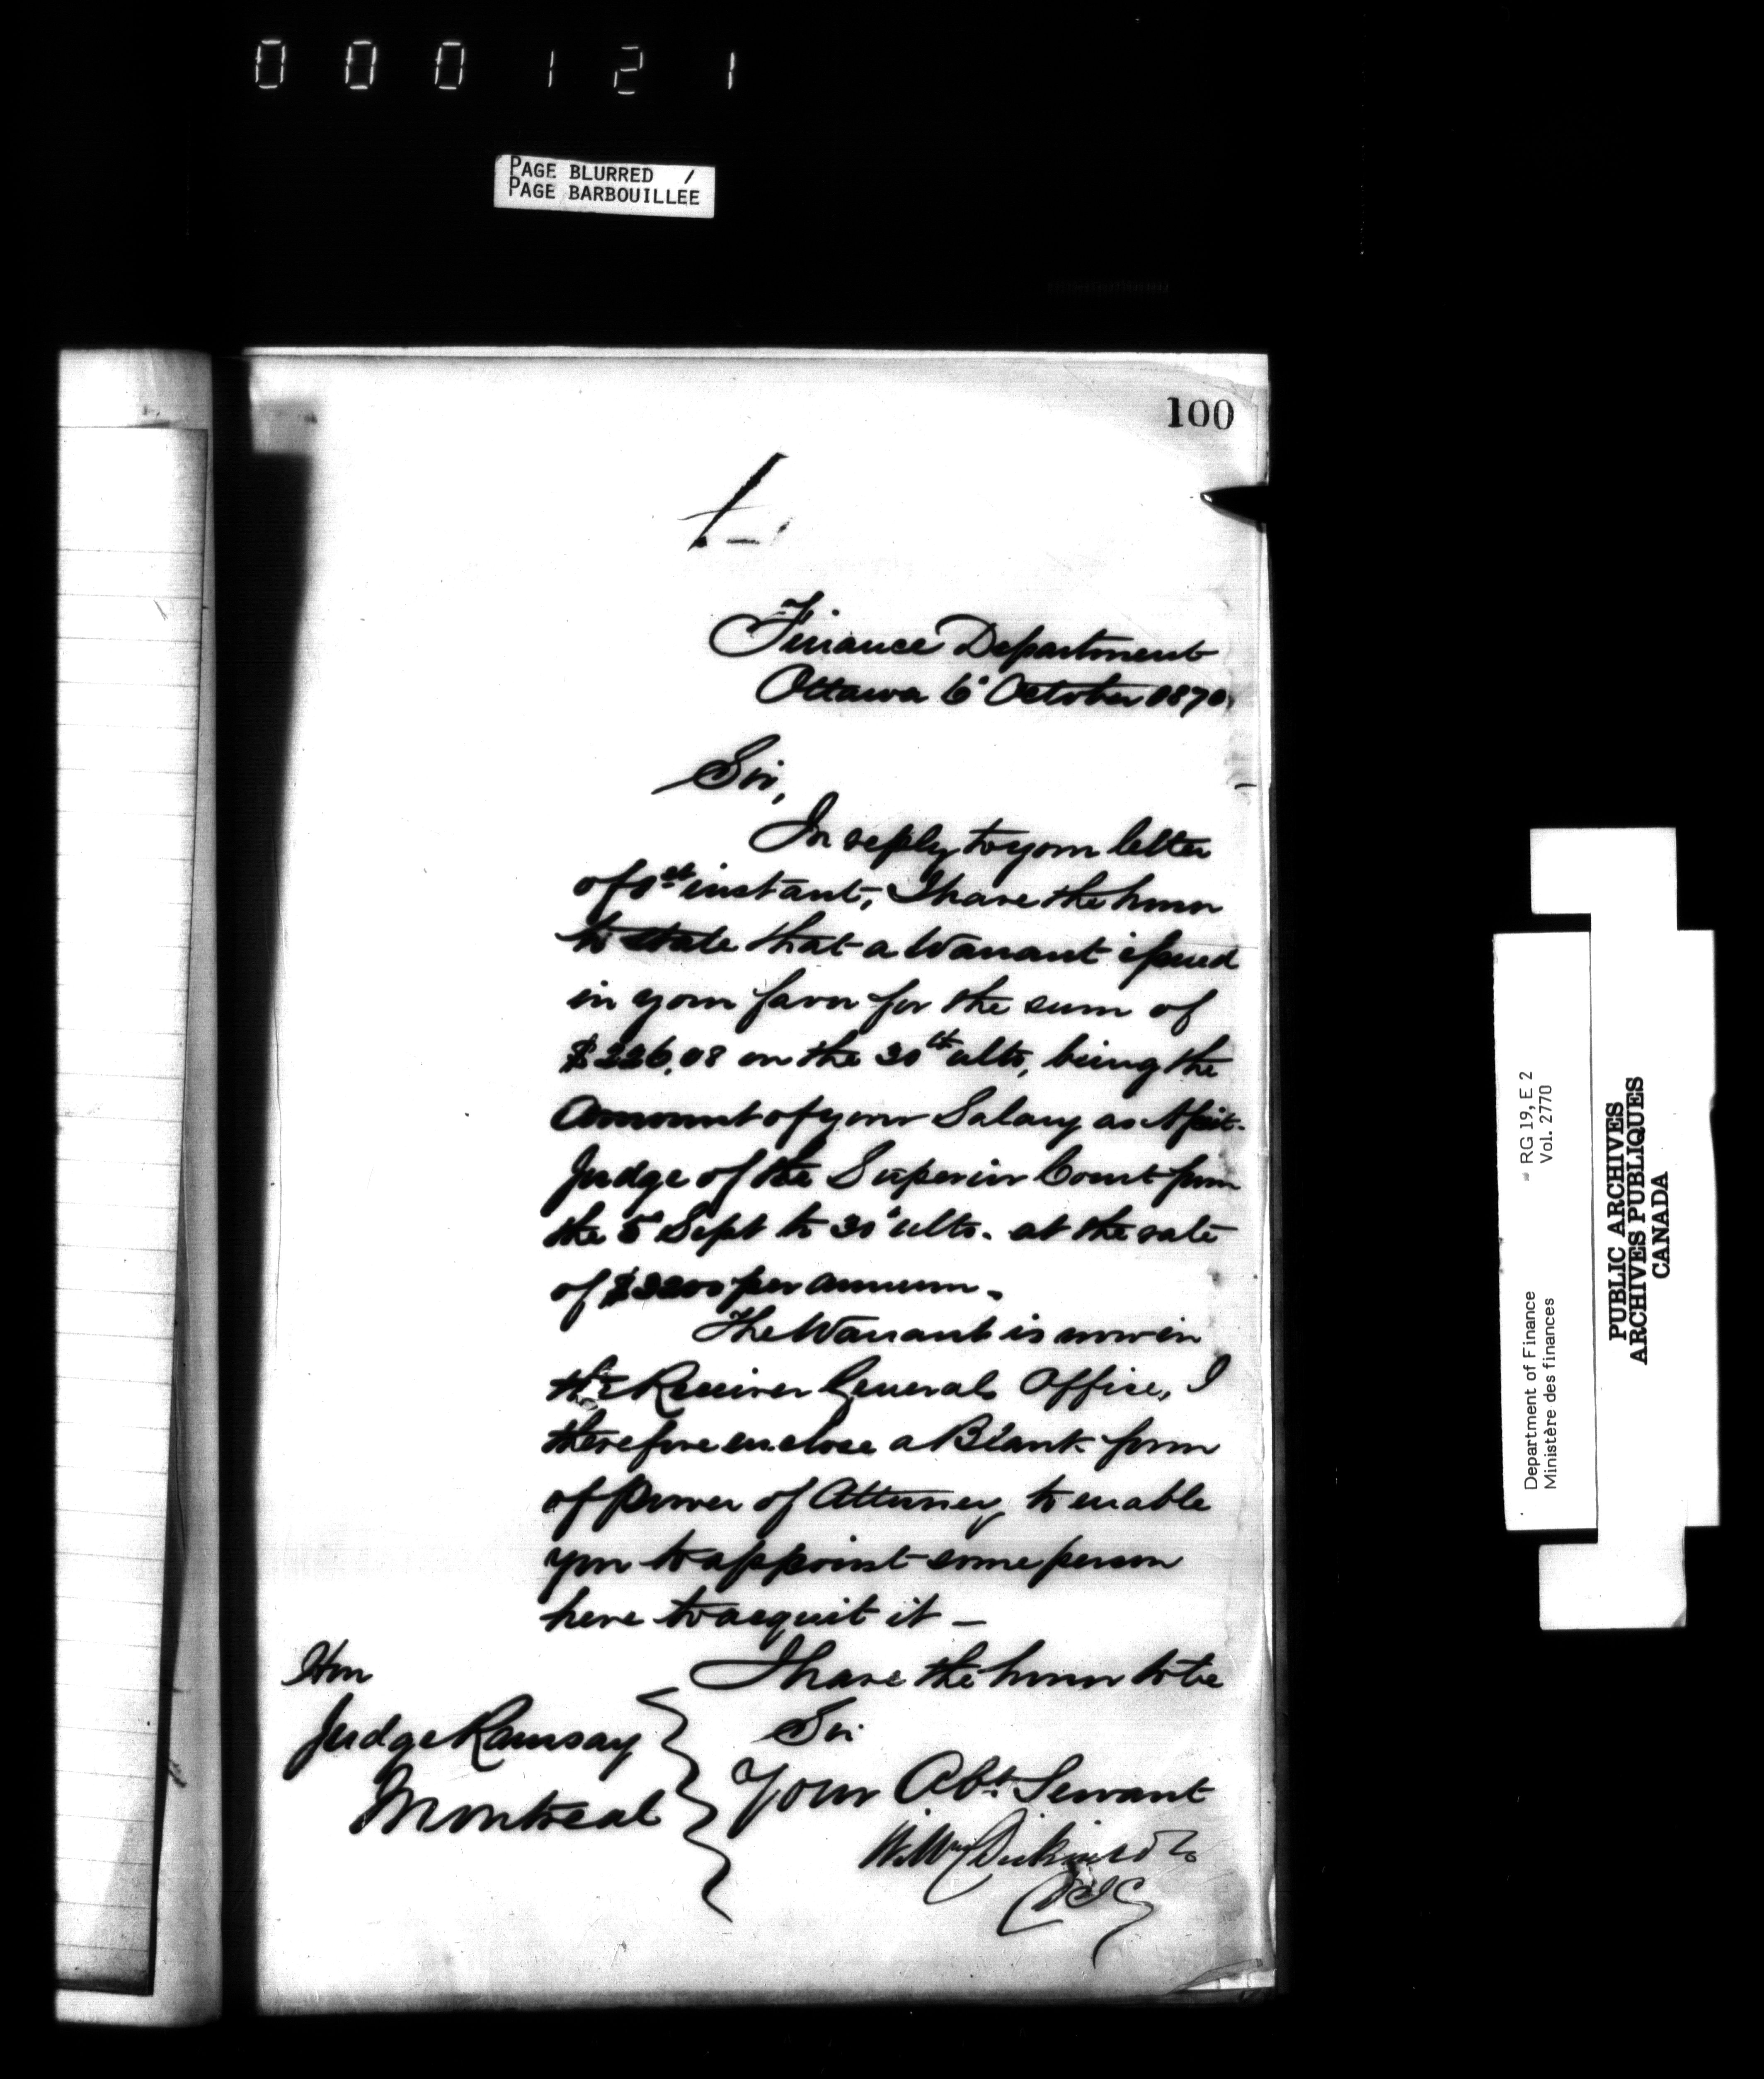 000121
PAGE BLURRED /
PAGE BARBOUILLEE
100
Finance Department
Ottawa 6 October 1870,
Sir,
In reply to your letter
of 1st instant, I have the honor
to state that a Warrant issued
in your favor for the sum of
$226.08 on the 30th ulto, being the
Amount of your Salary as Asist.
Judge of the Superior Court from
the 5 Sept to 30 ulto. at the rate
of $3200 per annum.
The Warrant is now in
the Receiver Generals Office, I
therefore enclose a Blank form
of Power of Attorney to enable
you to appoint some person
here to acquit it –
I have the honor to be
Sir
Your Obt. Servant
Dickinson
Hon
Judge Ramsay
Montreal
Department of Finance RG 19, E 2
Ministère des finances Vol. 2770
PUBLIC ARCHIVES
ARCHIVES PUBLIQUES
CANADA